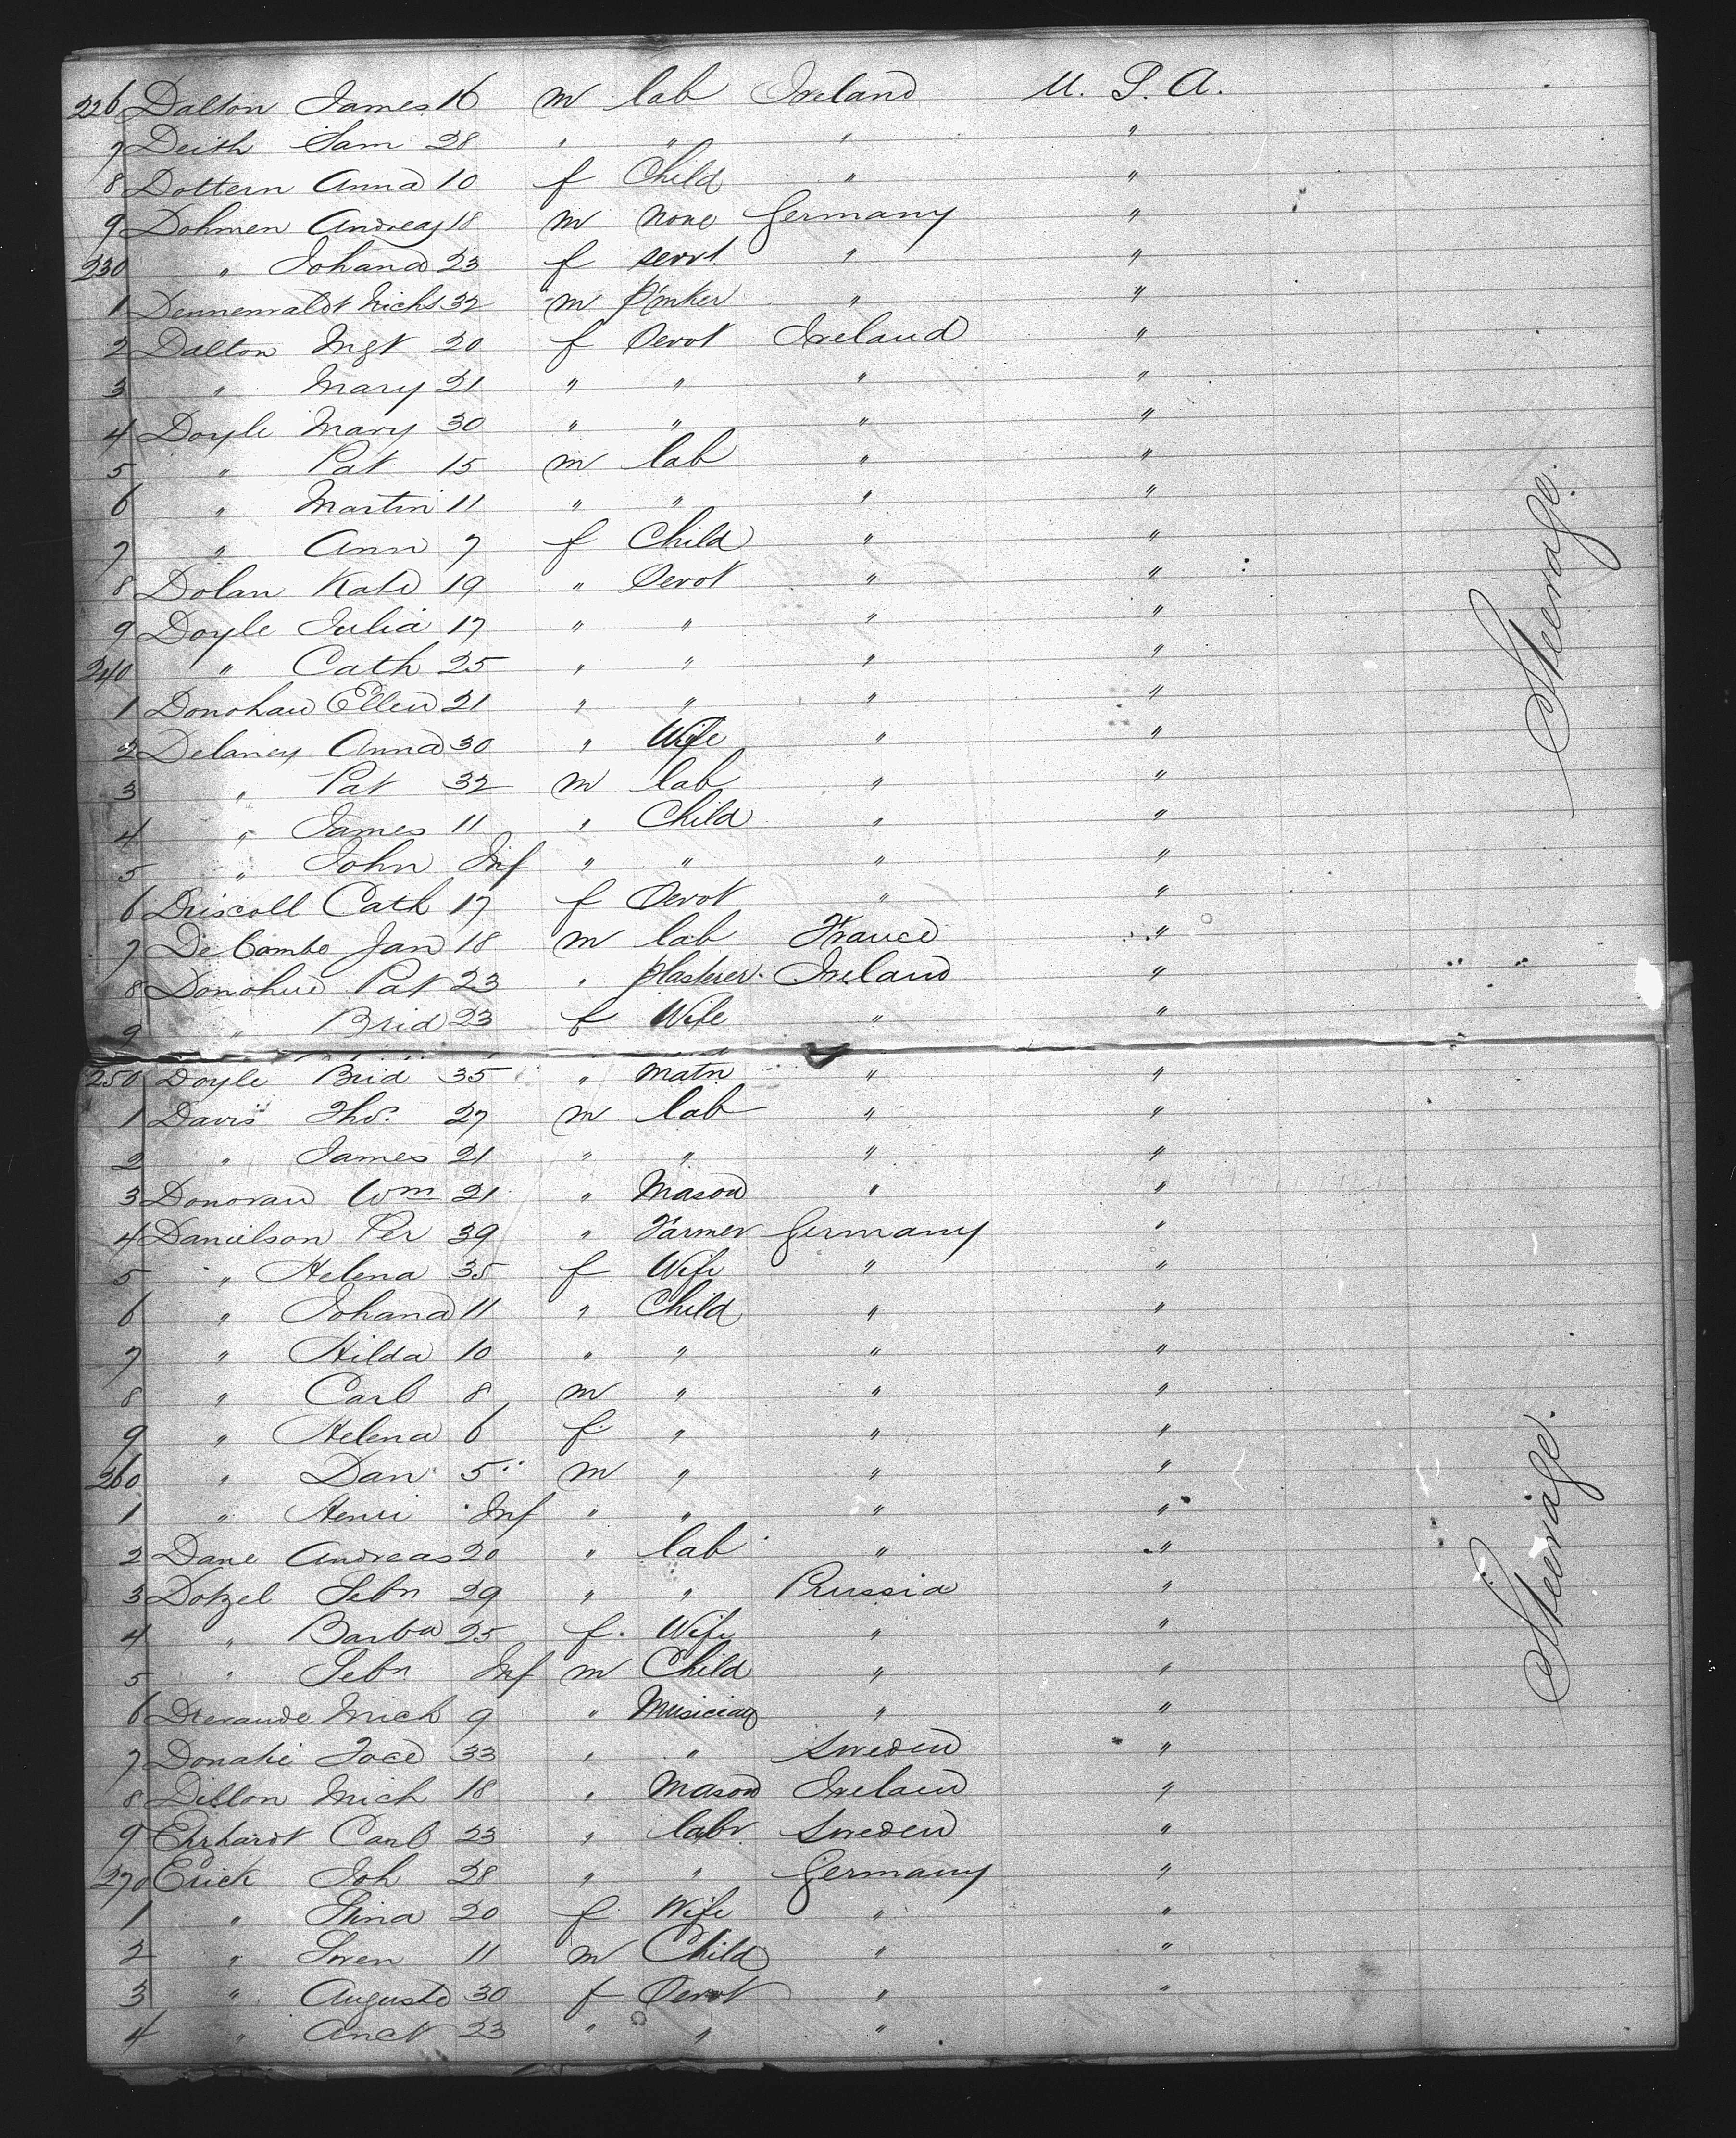 226 Dalton James 16 m lab Ireland U. S. A.
7 Deith Sam 28 " " " "
8 Dottern Anna 10 f Child " "
9 Dohmen Andreas 18 m none Germany "
230 " Johana 23 f servt. " "
1 Dennenwaldt Nichs 32 m " "
2 Dalton Mgt 20 f Servt Ireland "
3 " Mary 21 " " " "
4 Doyle Mary 30 " " " "
5 " Pat 15 m lab " "
6 " Martin 11 " " " "
7 " Ann 7 f Child " "
8 Dolan Kate 19 " Servt " "
9 Doyle Julia 17 " " " "
240 " Cath 25 " " " "
1 Donohau Ellen 21 " " " "
2 Delaney Anna 30 " Wife " "
3 " Pat 32 m lab " "
4 " James 11 " Child " "
5 " John Inf " " " "
6 Driscoll Cath 17 f Servt " "
7 De Combe Jan 18 m lab France "
8 Donohue Pat 23 " plasterer Ireland "
9 " Brid 23 f Wife " "
250 Doyle Brid 35 " matn " "
1 Davis Tho.s 27 m lab " "
2 " James 21 " " " "
3 Donovan Wm 21 " Mason " "
4 Danielson Per 39 " Farmer Germany "
5 " Helena 35 f Wife " "
6 " Johana 11 " Child " "
7 " Hilda 10 " " " "
8 " Carl 8 m " " "
9 " Helena 6 f " " "
260 " Dan 5 m " " "
1 " Henri Inf " " " "
2 Dane Andreas 20 " lab " "
3 Dotzel Sebn 29 " " Prussia "
4 " Barba 25 f. Wife " "
5 " Sebn Inf m Child " "
6 Mich 9 " Musician " "
7 Donati 33 " " Sweden "
8 Dillon Mich 18 " Mason Ireland "
9 Ehrhardt Carl 23 " labr Sweden "
270 Erick Joh 28 " " Germany "
1 " Stina 20 f Wife " "
2 " Swen 11 m Child " "
3 " Auguste 30 f Servt " "
4 " 23 " " "
Steerage.
Steerage.